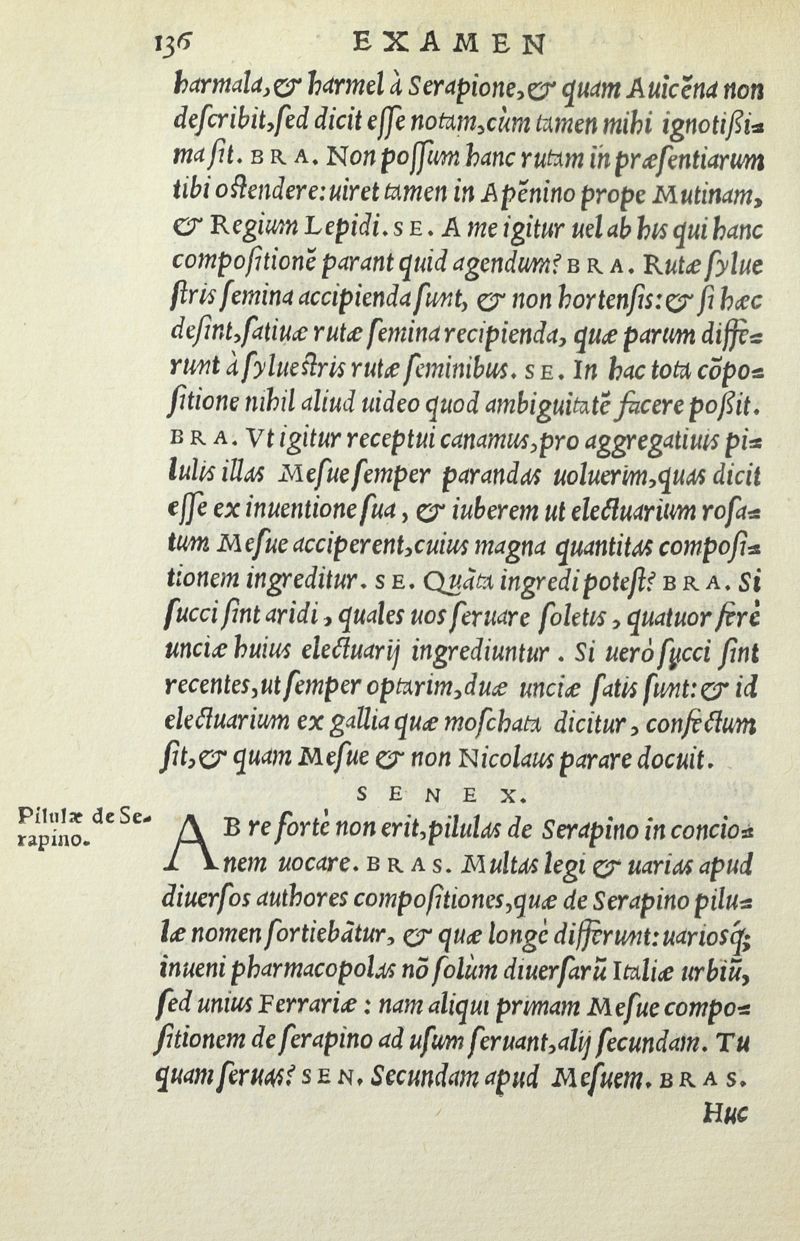 136 EXAMEN
harmala,& harmel à Serapione,& quam Auicẽna non
deſcribit,ſed dicit eſſe notam,cùm tamen mihi ignotiſſi=
ma ſit. BRA. Non poſſum hanc rutam in præſentiarum
tibi oſtendere: uiret tamen in Apẽnino prope Mutinam,
& Regium Lepidi. SE. A me igitur uel ab his qui hanc
compoſitionẽ parant quid agendum? BRA. Rutæ ſylue
ſtris ſemina accipienda ſunt, & non hortenſis: & ſi hæc
deſint,ſatiuæ rutæ ſemina recipienda, quæ parum diffe=
runt à ſylueſtris rutæ ſeminibus. SE. In hac tota cõpo=
ſitione nihil aliud uideo quod ambiguitatẽ facere poßit.
BRA. Vt igitur receptui canamus,pro aggregatiuis pi=
lulis illas Meſue ſemper parandas uoluerim,quas dicit
eſſe ex inuentione ſua, & iuberem ut electuarium roſa=
tum Meſue acciperent,cuius magna quantitas compoſi=
tionem ingreditur. SE. Quãta ingredi poteſt? BRA. Si
ſucci ſint aridi, quales uos ſeruare ſoletis, quatuor ferè
unciæ huius electuarij ingrediuntur. Si uerò ſycci ſint
recentes,ut ſemper optarim,duæ unciæ ſatis ſunt: & id
electuarium ex gallia quæ moſchata dicitur, confectum
ſit,& quam Meſue & non Nicolaus parare docuit.
SENEX.
Pilulæ de Se-
rapino.
AB re fortè non erit,pilulas de Serapino in concio=
nem uocare. BRAS. Multas legi & uarias apud
diuerſos authores compoſitiones,quæ de Serapino pilu=
læ nomen ſortiebãtur, & quæ longè differunt: uariosq́;
inueni pharmacopolas nõ ſolùm diuerſarũ Italiæ urbiũ,
ſed unius Ferrariæ: nam aliqui primam Meſue compo=
ſitionem de ſerapino ad uſum ſeruant,alij ſecundam. Tu
quam ſeruas? SEN. Secundam apud Meſuem. BRAS.
Huc